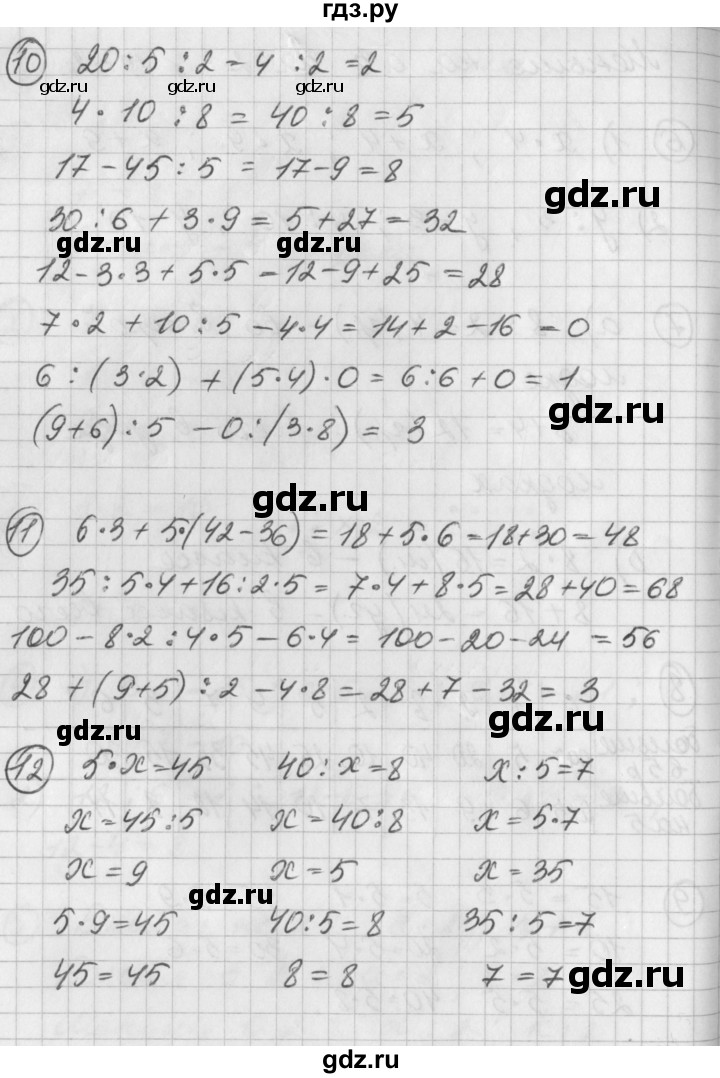 гдз.ру
10 20:5:2-4:2=2
gdz.ru gdz.ru gdz.ru
4·10:8=40:8=5
17-45:5=17-9=8
gdz.ru
30:6+3·9=5+27=32
gdz.ru gdz.ru
12-3·3+5·5-12-9+25=28
7·2+10:5-4·4=14+2-16-0
6:(3·2)+(5·4)·0=6:6+0=1
gdz.ru
(9+6):5-0:(3·8)=3
gdz.ru
11 6·3+5·(42-36)=18+5·6=18+30=48
35:5·4+16:2·5=7·4+8·5=28+40=68
100-8·2:4·5-6·4=100-20-24=56
28+(9+5):2-4·8=28+7-32=3
gdz.ru gdz.ru
12 5·x=45 40:x=8 x:5=7
x=45:5 x=40:8 x=5·7
x=9 x=5 x=35
gdz.ru
5·9=45 40:5=8 35:5=7
45=45 8=8 7=7
gdz.ru
gdz.ru